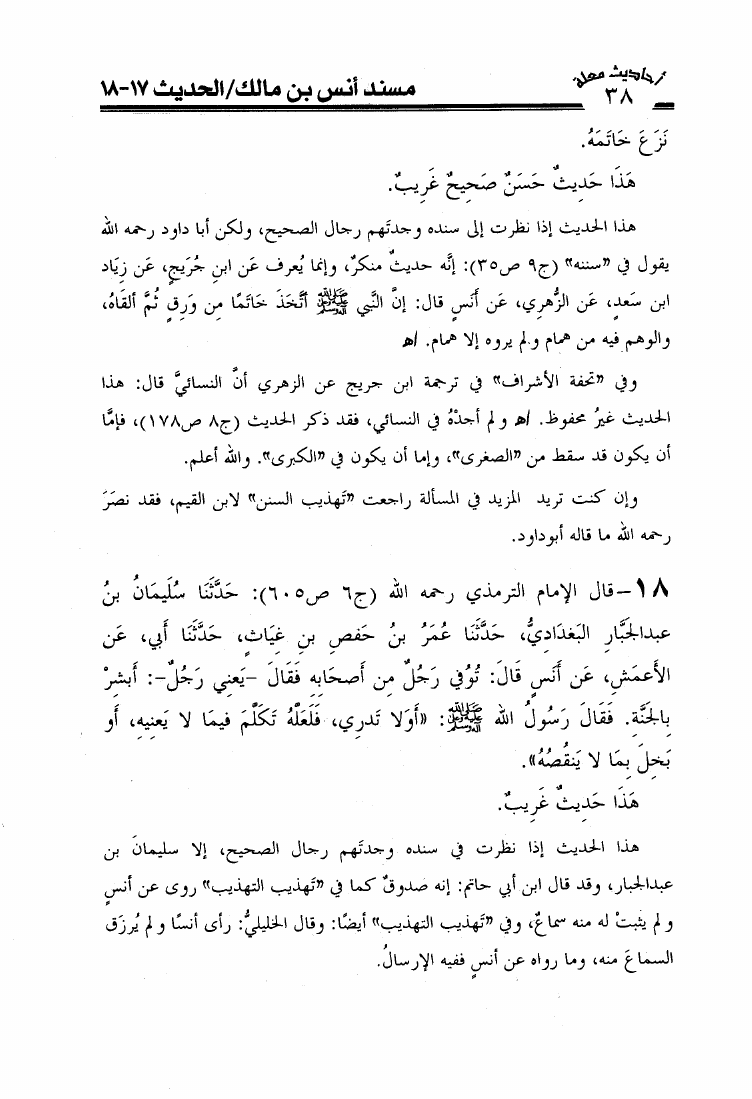 أحاديث معلة
٣٨
مسند أنس بن مالك/الحديث ١٧-١٨
نَزَعَ خَاتَمَهُ.
هَذَا حَدِيثٌ حَسَنٌ صَحِيحٌ غَرِيبٌ.
هذا الحديث إذا نظرت إلى سنده وجدتَهم رجال الصحيح، ولكن أبا داود رحمه الله
يقول في «سننه» (ج٩ ص٣٥): إنَّه حديثٌ منكرٌ، وإنما يُعرف عَن ابنِ جُرَيجٍ، عَن زِيَادِ
ابن سَعدٍ، عَن الزُّهرِي، عَن أَنَسٍ قال: إنَّ النَّبي ﷺ اتَّخَذَ خَاتَمًا مِن وَرِقٍ ثُمَّ أَلقَاهُ،
والوهم فيه من همام ولم يروه إلا همام. اﻫ
وفي «تحفة الأشراف» في ترجمة ابن جريج عن الزهري أنَّ النسائيَّ قال: هذا
الحديث غيرُ محفوظ. اﻫ ولم أجدْهُ في النسائي، فقد ذكر الحديث (ج٨ ص١٧٨)، فإمَّا
أن يكون قد سقط من «الصغرى»، وإما أن يكون في «الكبرى». والله أعلم.
وإن كنت تريد المزيد في المسألة راجعت «تَهذيب السنن» لابن القيم، فقد نصَرَ
رحمه الله ما قاله أبوداود.
١٨-قال الإمام الترمذي رحمه الله (ج٦ ص٦٠٥): حَدَّثَنَا سُلَيمَانُ بنُ
عبدالجَبَّارِ البَغدَادِيُّ، حَدَّثَنَا عُمَرُ بنُ حَفصِ بنِ غِيَاثٍ، حَدَّثَنَا أَبي، عَن
الأَعمَشِ، عَن أَنَسٍ قَالَ: تُوُفِّي رَجُلٌ مِن أَصحَابِه فَقَالَ -يَعنِي رَجُلٌ-: أَبشِرْ
بِالجَنَّةِ. فَقَالَ رَسُولُ الله ﷺ: «أَوَلا تَدرِي، فَلَعَلَّهُ تَكَلَّمَ فِيمَا لا يَعنِيهِ، أَو
بَخِلَ بِمَا لا يَنقُصُهُ».
هَذَا حَدِيثٌ غَرِيبٌ.
هذا الحديث إذا نظرت في سنده وجدتَهم رجال الصحيح، إلا سليمانَ بن
عبدالجبار، وقد قال ابن أبي حاتم: إنه صدوقٌ كما في «تَهذيب التهذيب» روى عن أنسٍ
ولم يثبتْ له منه سماعٌ، وفي «تَهذيب التهذيب» أيضًا: وقال الخليليُّ: رأى أنسًا ولم يُرزَق
السماعَ منه، وما رواه عن أنسٍ ففيه الإرسالُ.